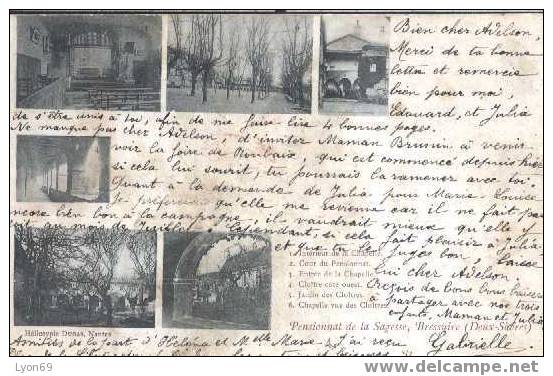 Bien cher Adelson,
Merci de ta bonne
lettre et remercie
bien pour moi,
Edouard, et Julia
de s'être unis à toi, afin de me faire lire 4 bonnes pages.
Ne manque pas cher Adelson, d'inviter Maman Brunin à venir
voir la foire de Roubaix, qui est commencé depuis hier
si cela lui sourit, tu pourrais la ramener avec toi.
Quant à la demande de Julia pour Marie-Louise
Je préférerais qu'elle me revienne car il ne fait pas
encore bien bon à la campagne, il vaudrait mieux qu'elle y
au mois de Juillet. Cependant, si cela fait plaisir à Julia
et que tu le juges bon,
cher Adelson,
Reçois de bons bons baisers
à partager avec nos trois
enfants. Maman et Julia
Gabrielle
1. Intérieur de la Chapelle
2. Cour du Pensionnat.
3. Entrée de la Chapelle
4. Cloître côté ouest.
5. Jardin des Cloîtres.
6. Chapelle vue des Cloîtres
Héliotypie Dugas, Nantes
Pensionnat de la Sagesse, Bressuire (Deux-Sèvres)
Amitiés de la part d'Héléna et Melle Marie. J'ai reçu
Lyon69
www.delcampe.net